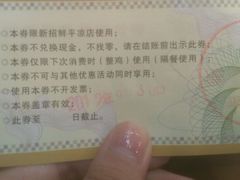 ○本券限新招鲜平凉店使用；
○本券不兑换现金，不找零，请在结账前出示此券；
○本券仅限下次消费时（整鸡）使用（隔餐使用）
○本券不可与其他优惠活动同时享用；
○使用本券不开发票；
○本券盖章有效；
○此券至 日截止。